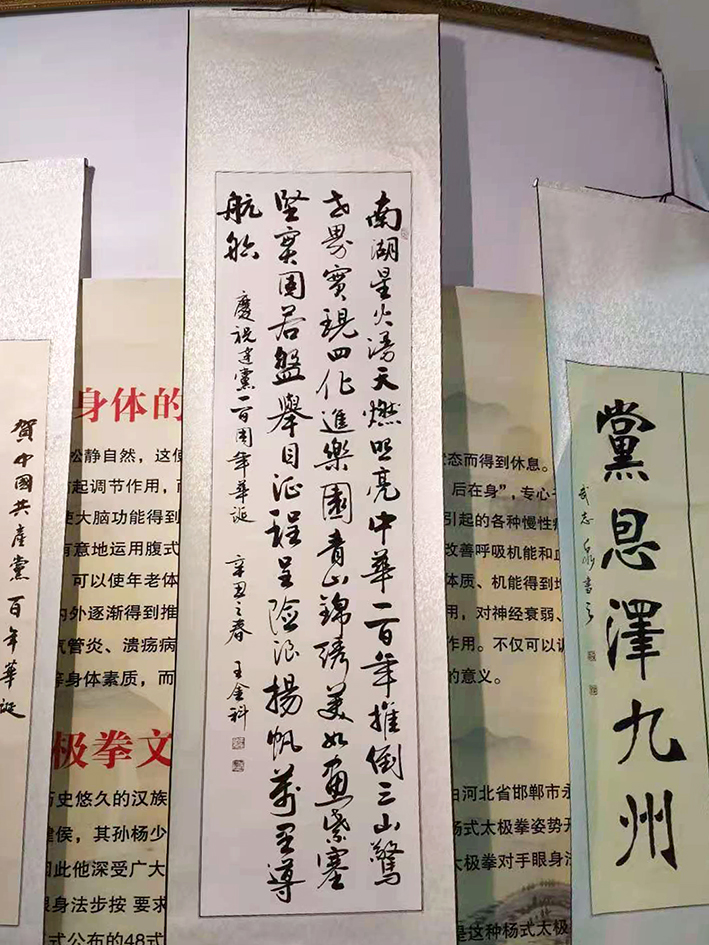 南湖星火漫天燃照亮中華一百年推倒三山驚
世界實現四化進樂園青山錦綉美如畫紫塞
堅實固若盤舉目征程呈险浪揚帆萬里導
航船
慶祝建黨一百周年華誕 辛丑之春 王金科
黨恩澤九州
武志泉書
賀中國共產黨百年華誕
身体的
松静自然，这使
起调节作用，而
使大脑功能得到
有意地运用腹式
可以使年老体
内外逐渐得到推
气管炎、溃疡病
等身体素质，而
极拳文
历史悠久的汉族
健侯，其孙杨少
因此他深受广大
眼身法步按 要求
式公布的48式
状态而得到休息。
后在身”，专心于
引起的各种慢性病
改善呼吸机能和血
体质、机能得到增
用，对神经衰弱、
作用。不仅可以
的意义。
由河北省邯郸市永
杨式太极拳姿势开
太极拳对手眼身法
是这种杨式太极